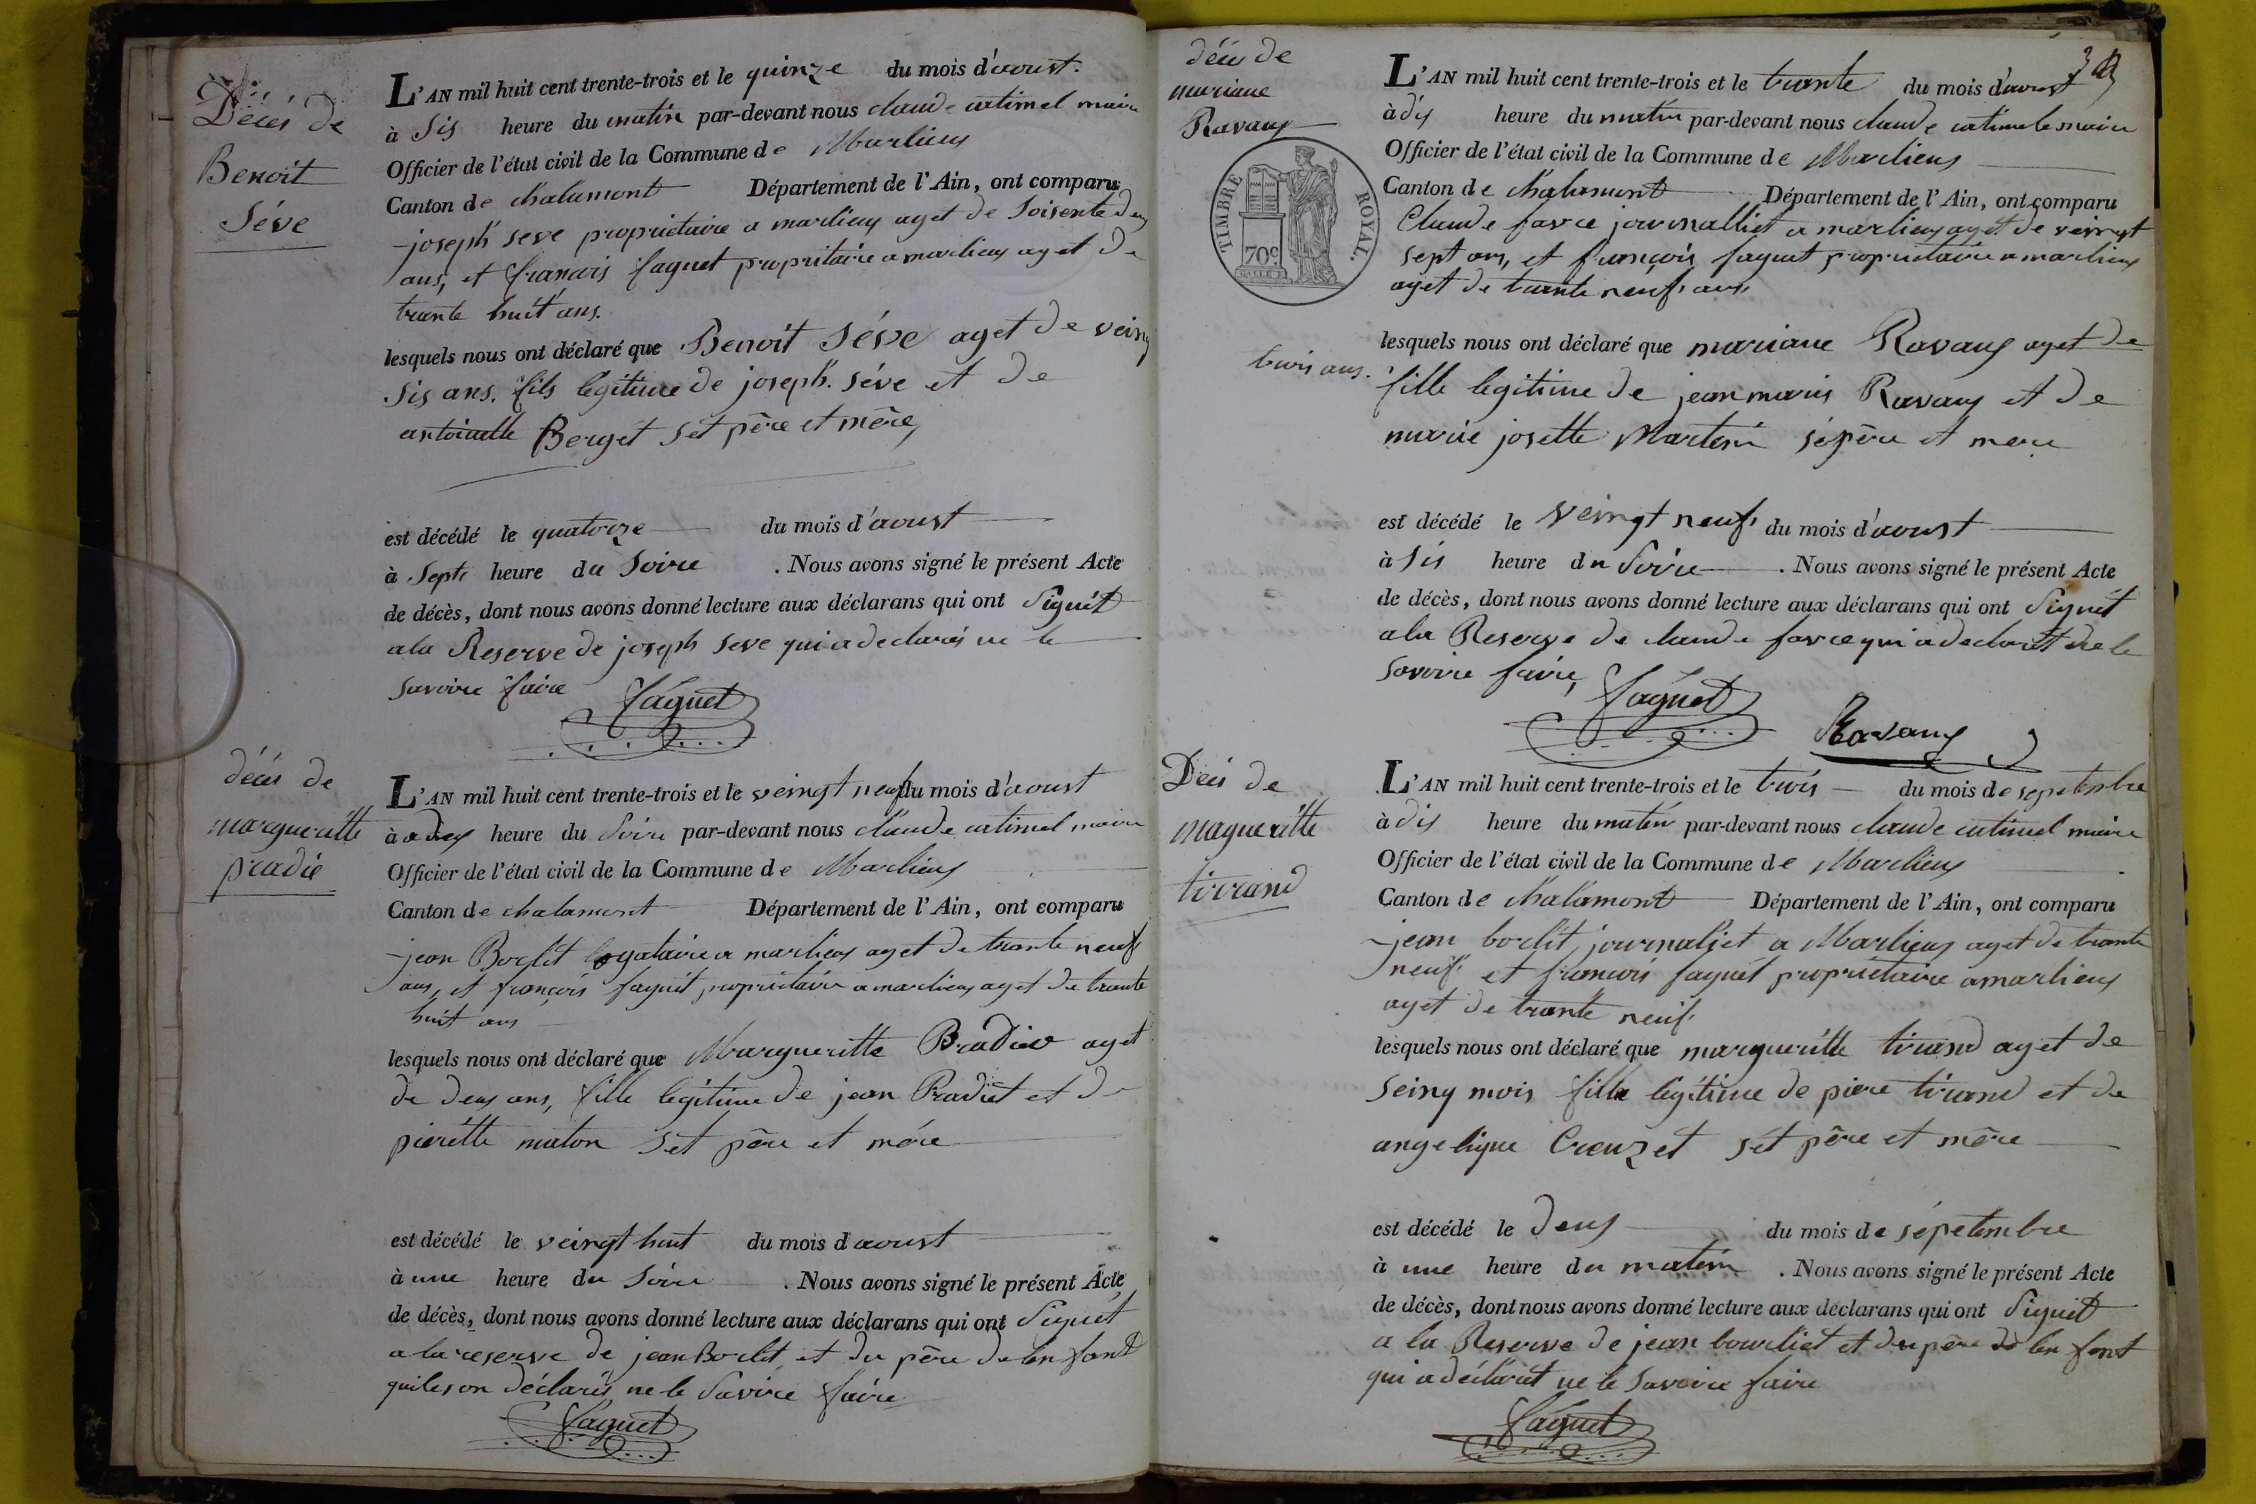 Décés de
Benoit
Séve
L'AN mil huit cent trente-trois et le quinze du mois d'aoust.
à Sis heure du matin par-devant nous claude catimel maire
Officier de l'état civil de la Commune de Marlieux
Canton de chalamont Département de l'Ain, ont comparu
joseph seve proprietaire a marlieux aget de Soisente deux
ans, et francois faguet propritaire a marlieux aget de
trante huit ans.
lesquels nous ont déclaré que Benoit Séve aget de veingt
sis ans. fils legitime de joseph. séve et de
antoinette Berget Set père et mère,
est décédé le quatorze du mois d'aoust
à Septs heure du Soire . Nous avons signé le présent Acte
de décès, dont nous avons donné lecture aux déclarans qui ont Signét
a la Reserve de joseph seve qui a declarés ne le
savoire faire
faguet
décés de
margueritte
pradie
L'AN mil huit cent trente-trois et le veingt neuf du mois d'aoust
à heure du Soire par-devant nous claude catimel maire
Officier de l'état civil de la Commune de Marlieux
Canton de chalamont Département de l'Ain, ont comparu
jean Borlit marlieux aget de trante neuf
ans, et françois faguét propriétaire a marlieux aget de trante
huit ans
lesquels nous ont déclaré que Margueritte aget
de deux ans, fille legitime de jean Pradiet et de
pierétte maton set père et mére
est décédé le veingt huit du mois d'aoust
à une heure du Soire . Nous avons signé le présent Acte
de décès, dont nous avons donné lecture aux déclarans qui ont Signét
a la reserve de jean Borlit et du père de lenfant
qui les on déclarés ne le Savoire faire
faguet
décés de
mariane
Ravaux
TIMBRE ROYAL.
70c
L'AN mil huit cent trente-trois et le trante du mois d'aoust
à dix heure du matin par-devant nous claude catimel maire
Officier de l'état civil de la Commune de Marlieux
Canton de chalamont Département de l'Ain, ont comparu
Claude favre journalliet a marlieux aget de veingt
sept ans, et françois faguet propriétaire a marlieux
aget de trante neuf ans
lesquels nous ont déclaré que mariane Ravaux aget de
trois ans. fille legitime de jean marie Ravaux et de
marie josette Martin sé père et mere
est décédé le veingt neuf du mois d'aoust
à Sis heure du Soire . Nous avons signé le présent Acte
de décès, dont nous avons donné lecture aux déclarans qui ont Signét
a la Reserve de claude favre qui a declarét ne le
savoire faire,
faguet
Ravaux
Décés de
magueritte
tirrand
L'AN mil huit cent trente-trois et le trois du mois de sepetembre
à dix heure du matin par-devant nous claude catimel maire
Officier de l'état civil de la Commune de Marlieux
Canton de chalamont Département de l'Ain, ont comparu
jean borlit, journaliet a Marlieux aget de trante
neuf et francois faguét propriétaire a marlieux
aget de trante neuf
lesquels nous ont déclaré que margueritte tirand aget de
seinq mois fille légitime de piere tirand et de
angelique Creuzet sét père et mère
est décédé le deux du mois de sépetembre
à une heure du matin . Nous avons signé le présent Acte
de décès, dont nous avons donné lecture aux déclarans qui ont Signét
a la Reserve de jean bourliet et du père de len fant
qui a déclarét ne le savoire faire
faguet